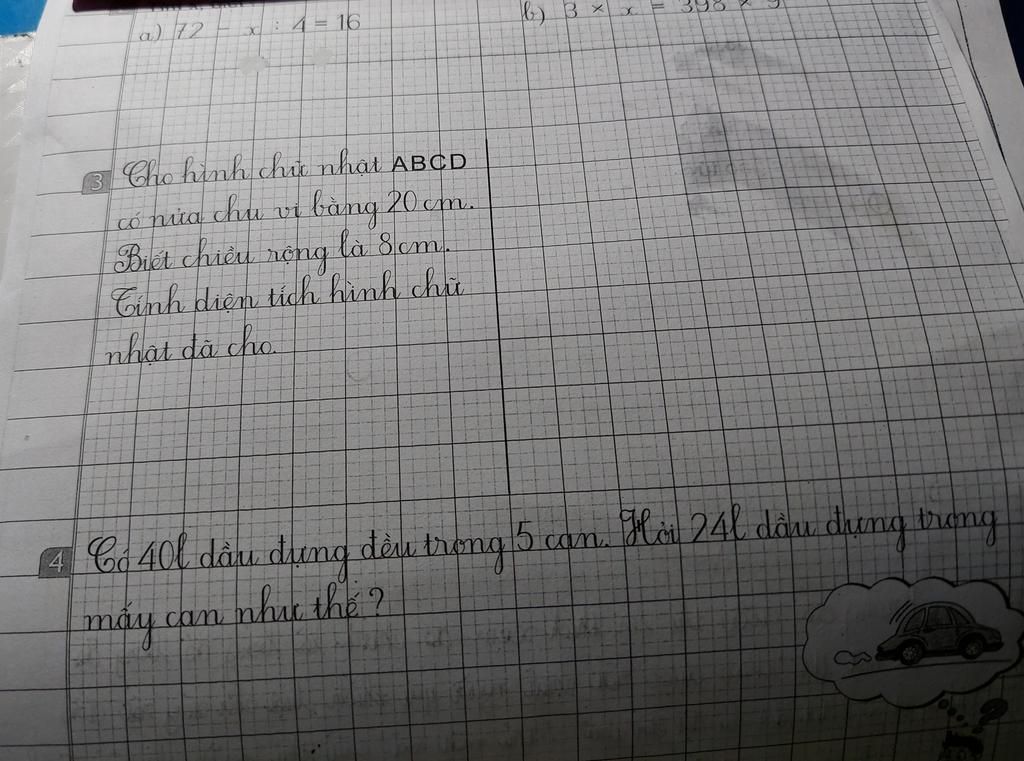 a) 72 - x : 4 = 16
b) 3 × x = 398 ×
3 Cho hình chữ nhật ABCD
có nửa chu vi bằng 20 cm.
Biết chiều rộng là 8 cm.
Tính diện tích hình chữ
nhật đã cho.
4 Có 40l dầu đựng đều trong 5 can. Hỏi 24l dầu đựng trong
mấy can như thế?
?